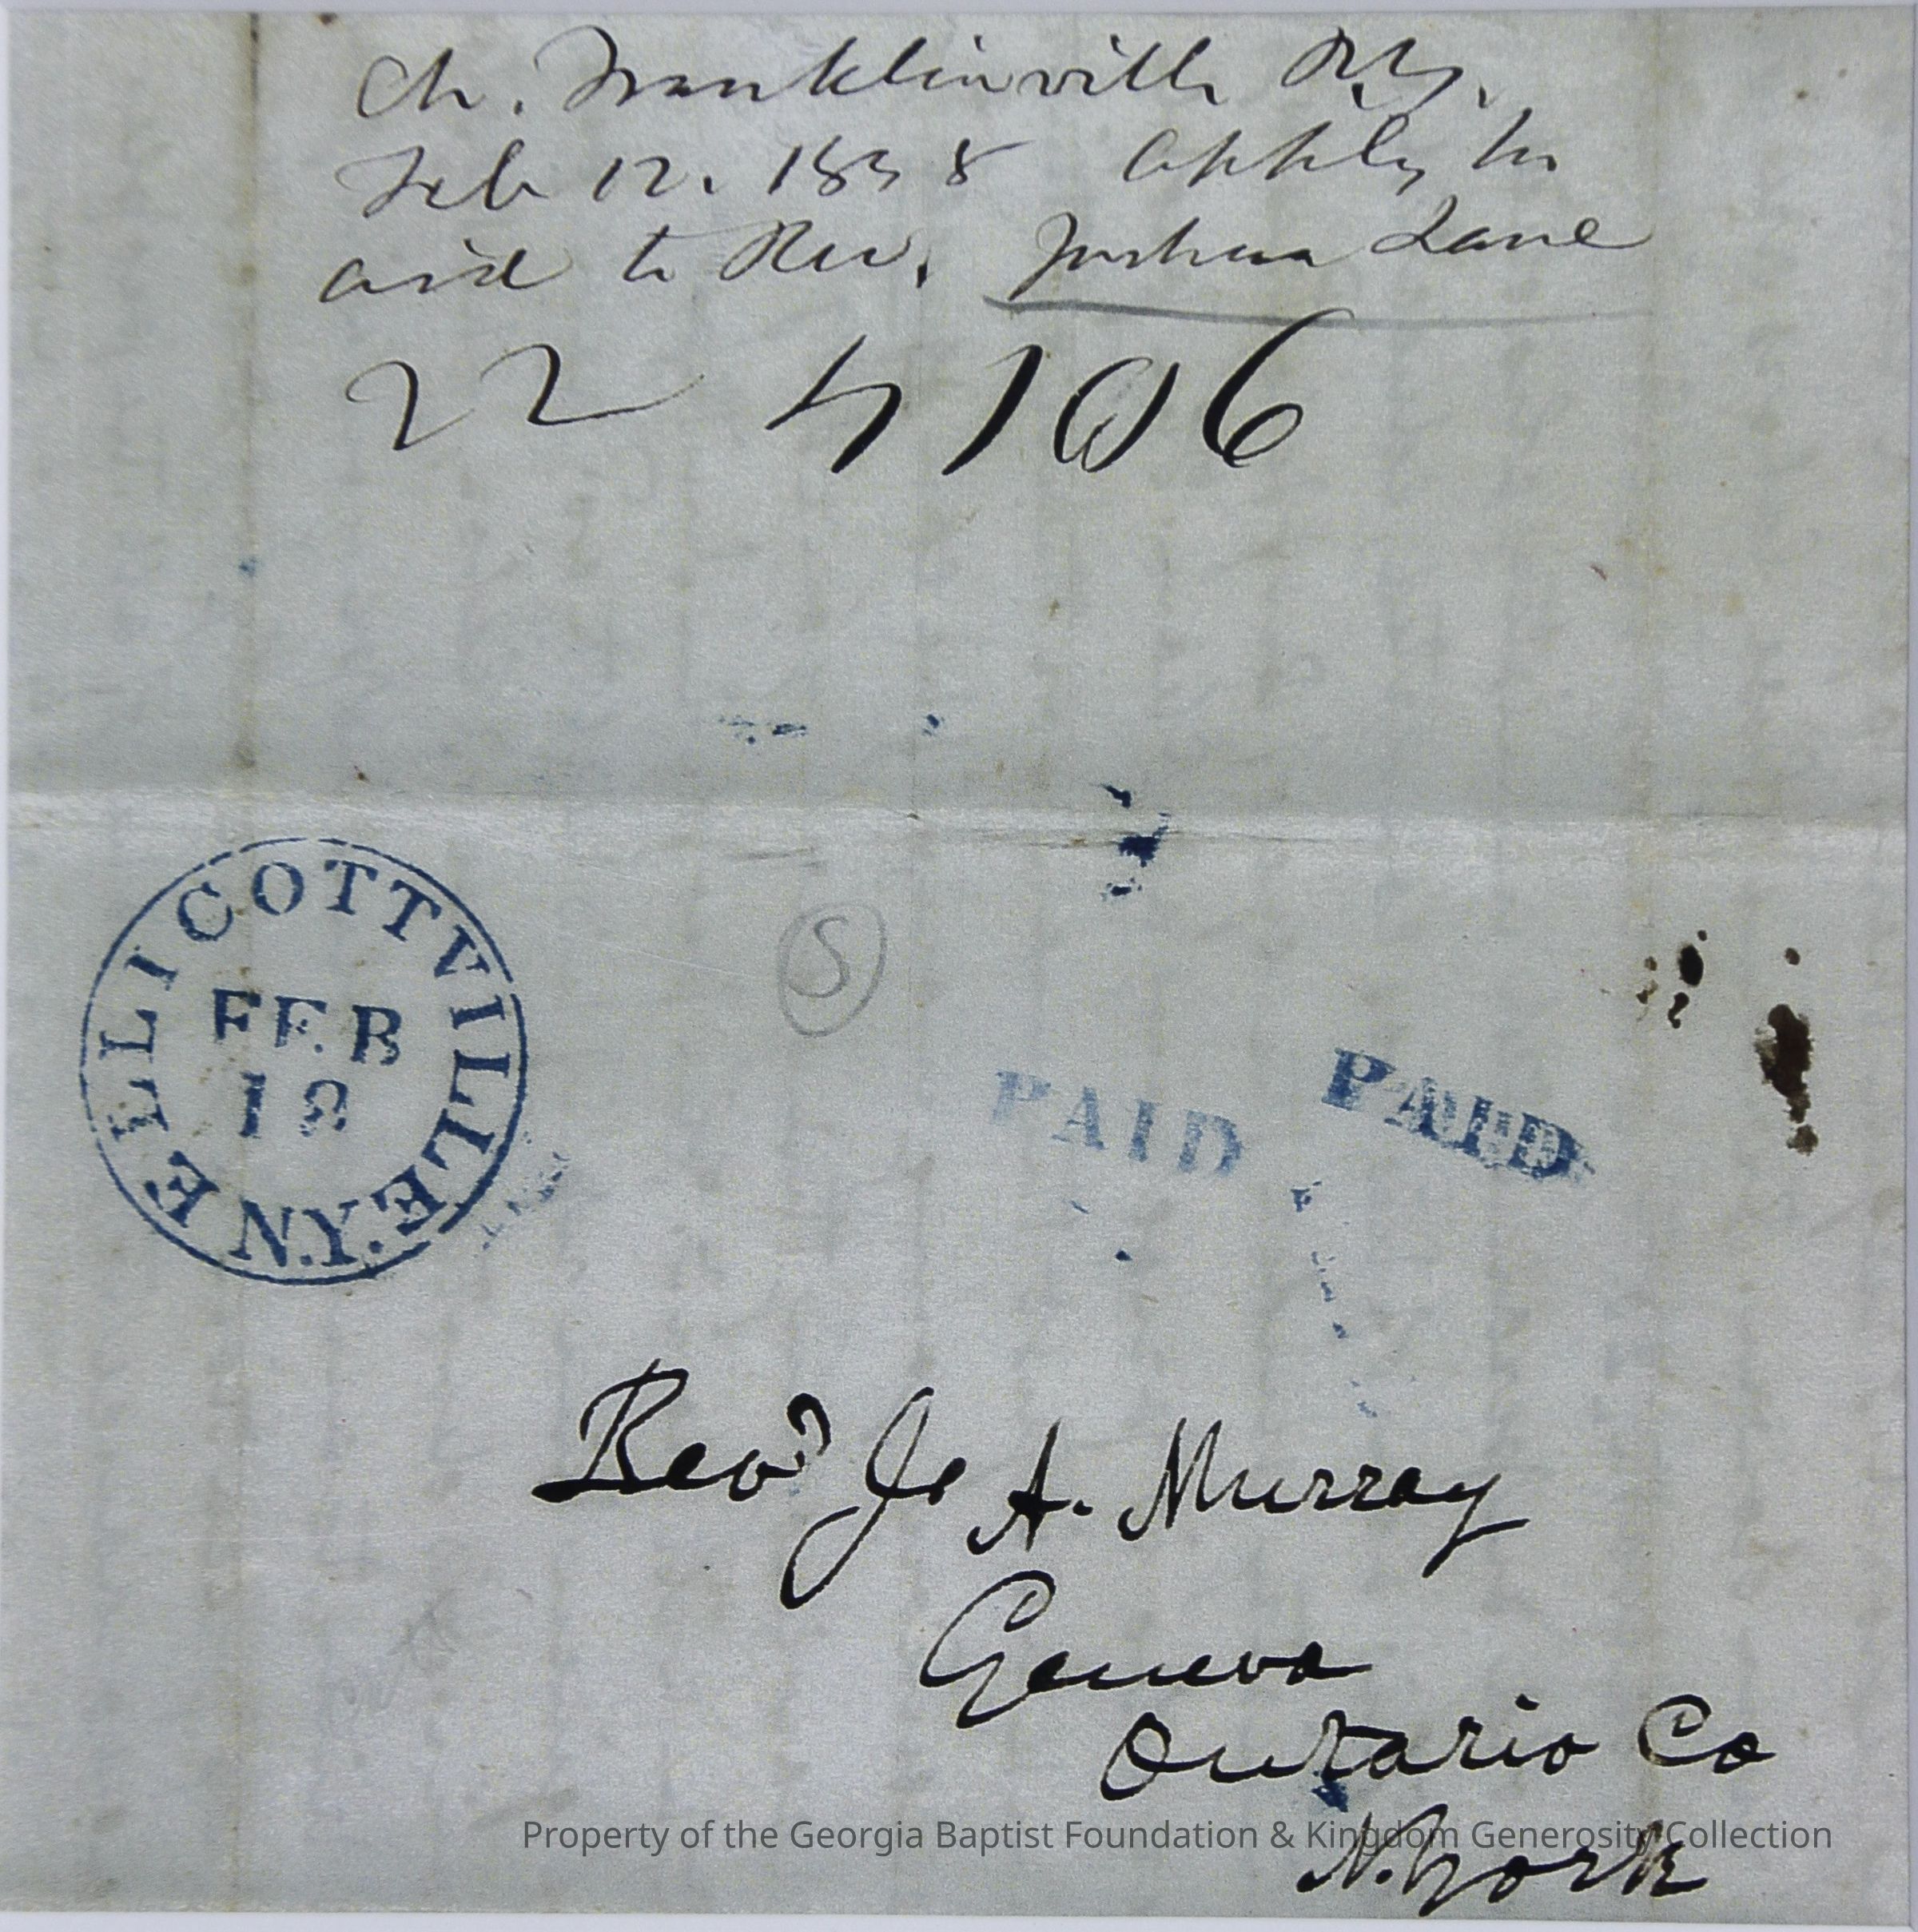 Ch. Franklinville N.Y.
Feb 12. 1838 apply for
aid to Rev. Joshua Lane
22 4106
ELLICOTTVILLE N.Y.
FEB
19
S
PAID PAID
Revd Js A. Murray
Geneva
Ontario Co
N. York
Property of the Georgia Baptist Foundation & Kingdom Generosity Collection